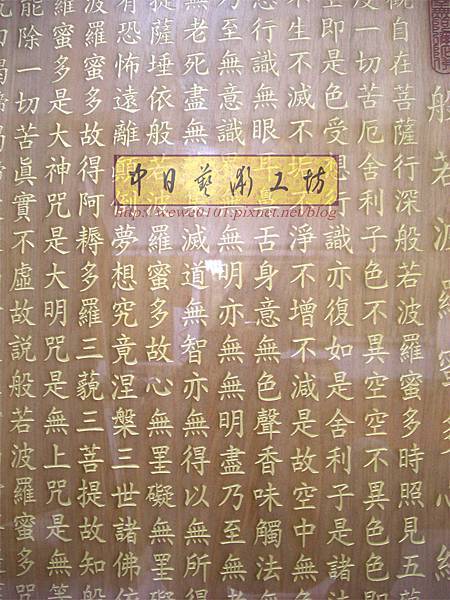 般若波羅蜜多心經
觀自在菩薩行深般若波羅蜜多時照見五
度一切苦厄舍利子色不異空空不異色色
空即是色受想識亦復如是舍利子是諸法
不生不滅不淨不增不減是故空中無
行識無眼耳鼻舌身意無色聲香味觸法
乃至無意識無明亦無無明盡乃至無
無老死盡無滅道無智亦無得以無所
提薩埵依般波羅蜜多故心無罣礙無罣
有恐怖遠離倒夢想究竟涅槃三世諸佛依
波羅蜜多故得阿耨多羅三藐三菩提故知般
羅蜜多是大神咒是大明咒是無上咒是無等
能除一切苦真實不虛故說般若波羅蜜多咒
中日藝術工坊
http://wewe0101.pixnet.net/blog